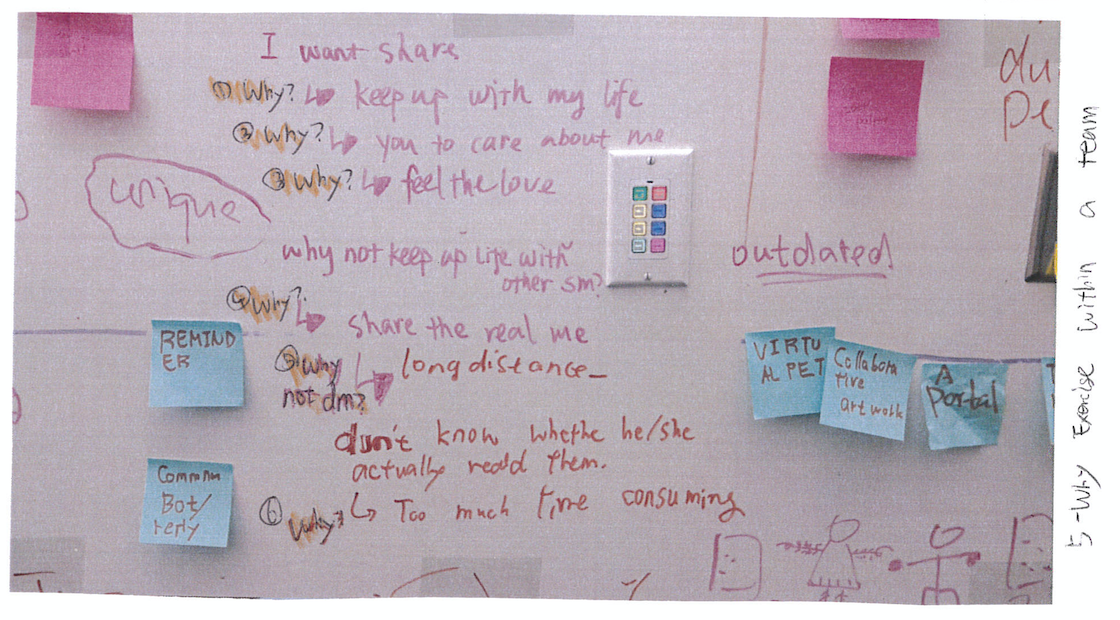 I want share
① Why? ↳ keep up with my life
② why? ↳ you to care about me
③ why? ↳ feel the love
unique
why not keep up life with
other sm?
④ Why? ↳ share the real me
⑤ why
not dm? ↳ long distance
don't know whethe he/she
actually read them.
⑥ why? ↳ Too much time consuming
outdated
REMIND
ER
Common
Bot/
reply
VIRTU
AL PET
Collabora
tive
art work
A
portal
du
De
5-Why Exercise within a team